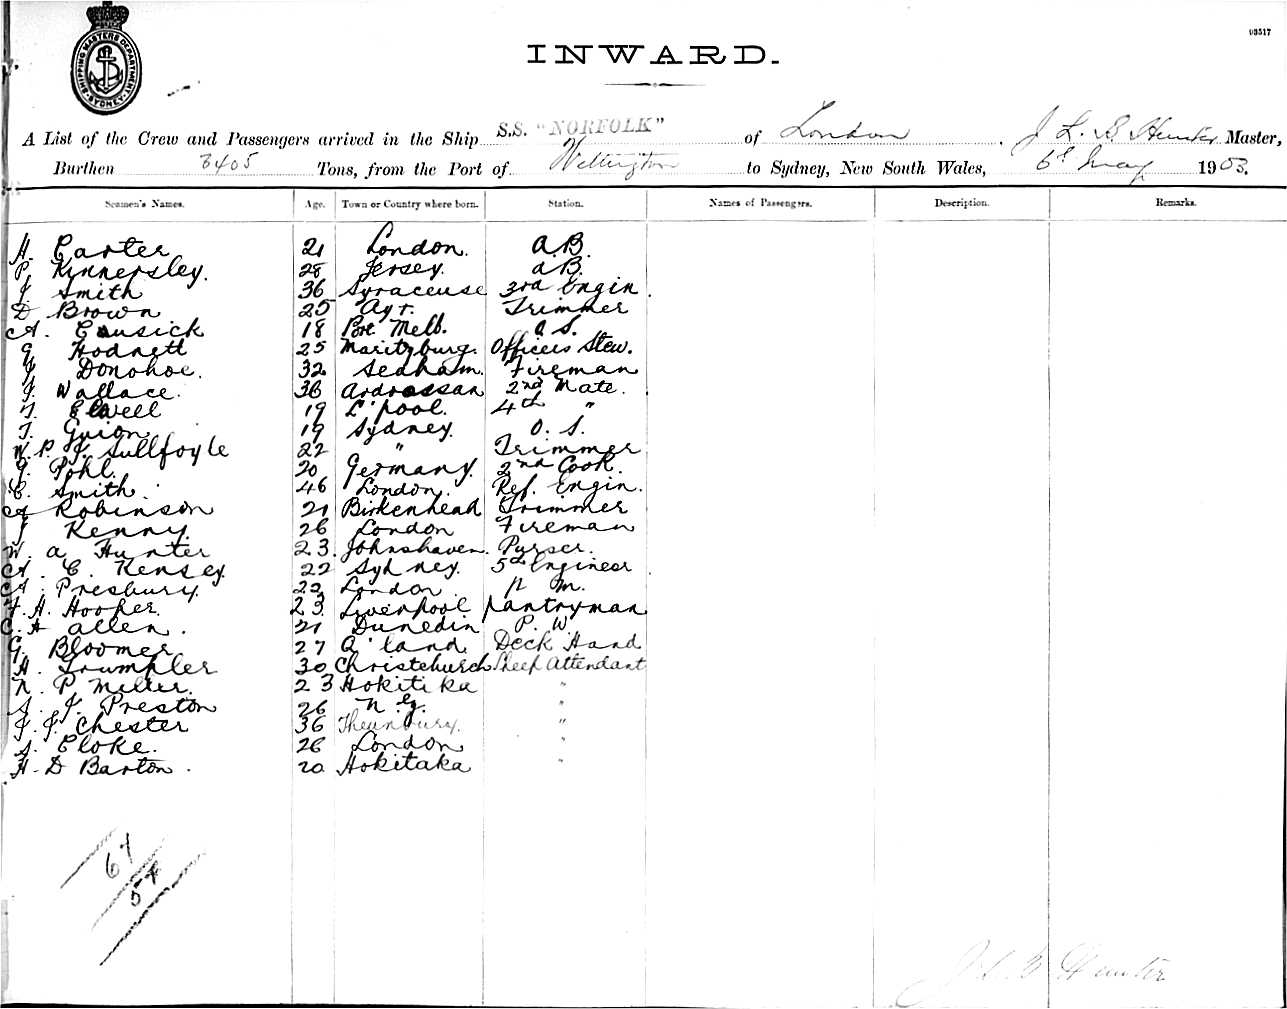 03517
SHIPPING MASTERS DEPARTMENT SYDNEY
INWARD.
A List of the Crew and Passengers arrived in the Ship S.S. "NORFOLK" of London, J L. B Hunter Master,
Burthen 3405 Tons, from the Port of Wellington to Sydney, New South Wales, 6th May 1903.
Seamen's Names. Age. Town or Country where born. Station. Names of Passengers. Description. Remarks.
H. Carter 21 London. A.B.
P. Kinnersley. 28 Jersey. A B.
J. Smith 36 Syraceuse 3rd Engin.
D Brown 25 Ayr. Trimmer
A. Cusick 18 Port Melb. O. S.
G Hodnett 25 Maritzburg. Officers Stew.
J Donohoe. 32 Seaham. Fireman
J. Wallace. 36 Ardrossan 2nd Mate.
T. Elwell 19 L'pool. 4th "
T. Guion 19 Sydney. O. S.
W. P. J. Sullfoyle 22 " Trimmer
G. Pohl. 20 Germany. 2nd Cook.
C. Smith. 46 London. Ref. Engin.
A Robinson 21 Birkenhead Trimmer
J Kenny. 26 London Fireman
W. A Hunter 23. Johnshaven. Purser.
A. C. Kensey. 22 Sydney. 5th Engineer
A. Presbury. 22 London.
F. H. Hooper. 23 Liverpool Pantryman
C. A Allen. 21 Dunedin P. W
G. Bloomer 27 A'land Deck Hand
H. Trumpler 30 Christchurch Sheep Attendant
N. P Miller. 23 Hokitika "
S. J. Preston 26 N. Z. "
J. J. Chester 36 "
S. Cloke. 26 London "
H. D Barton. 20 Hokitaka "
67
54
J L B Hunter